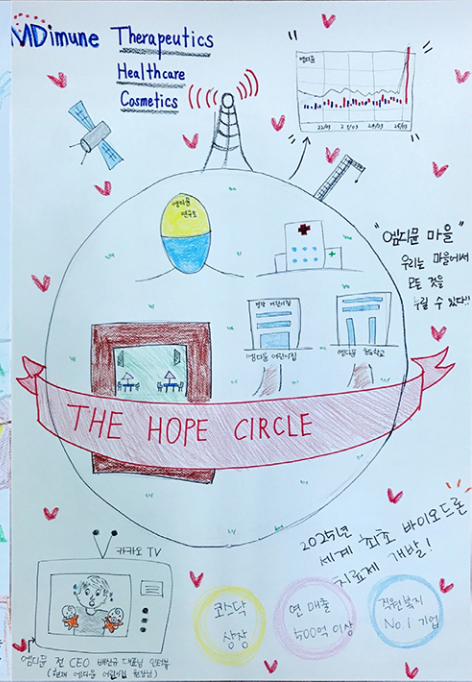 MDimune Therapeutics
Healthcare
Cosmetics
엠디뮨
"엠디뮨 마을"
우리는 마을에서
모든 것을
누릴 수 있다!!
엠디뮨
연구소
엠디뮨 어린이집
엠디뮨
THE HOPE CIRCLE
2025년
세계 최초 바이오드론
치료제 개발!
카카오 TV
코스닥
상장
연 매출
500억 이상
직원복지
No.1 기업
엠디뮨 전 CEO 배신규 대표님 인터뷰
(현재 엠디뮨 어린이집 원장님)